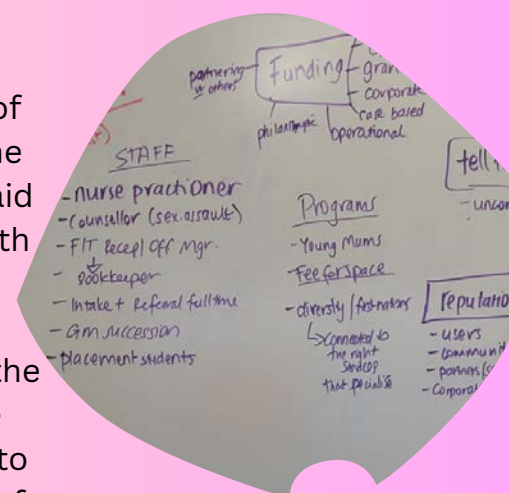 of
ne
aid
th
the
to
of
partnering
w others
Funding
gran
corporate
case based
operational
philanthropic
STAFF
- nurse practioner
- Counsellor (sex. assault)
- F/T Recep/ Off Mgr.
- Bookkeeper
- Intake + Referral fulltime
- GM succession
- placement students
Programs
- Young Mums
- Fee for space
- diversity / first nations
connected to
the right
that
tell
- uncon
reputatio
- users
- communit
- partners
- Corpora